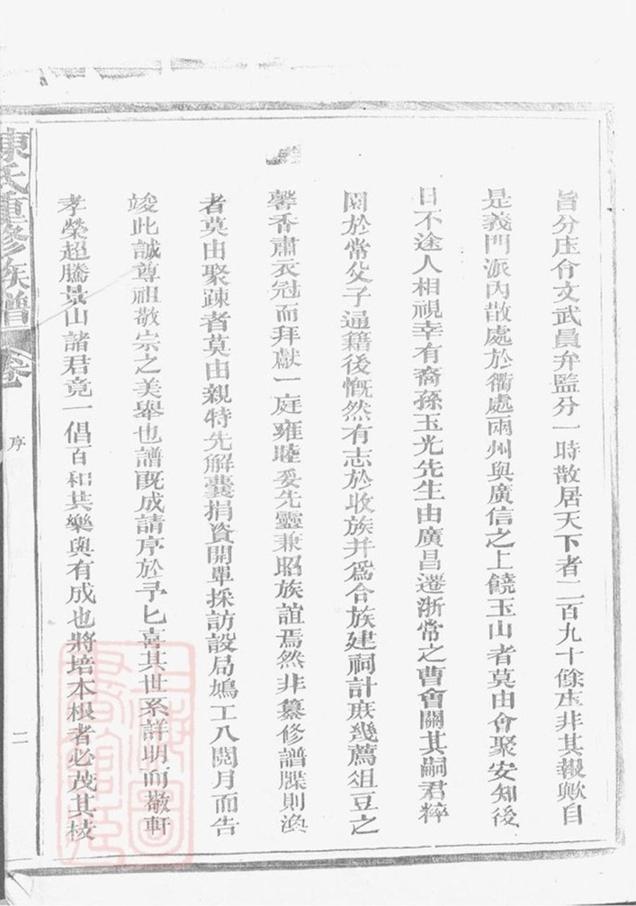 旨分庄合文武員弁監分一時散居天下者二百九十餘庄非其報歟自
是義門派內散處於衢處兩州與廣信之上饒玉山者莫由會聚安知後
日不途人相視幸有裔孫玉光先生由廣昌遷浙常之曹會關其嗣君粹
園於常父子通籍後慨然有志於收族并爲合族建祠計庶幾薦俎豆之
馨香肅衣冠而拜獻一庭雍睦爰先靈兼昭族誼焉然非纂修譜牒則渙
者莫由聚疎者莫由親特先解囊捐資開單採訪設局鳩工八閱月而告
竣此誠尊祖敬宗之美舉也譜旣成請序於予匕喜其世系詳明而敬軒
孝榮超騰景山諸君竟一倡百和其樂與有成也將培本根者必茂其枝
陳氏重修族譜 卷 序 二